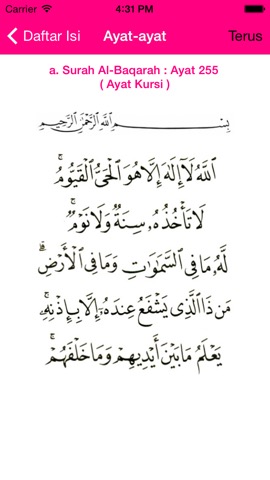 Carrier 4:31 PM
Daftar Isi Ayat-ayat Terus
a. Surah Al-Baqarah : Ayat 255
( Ayat Kursi )
بِسْمِ اللَّهِ الرَّحْمَٰنِ الرَّحِيمِ
اللَّهُ لَا إِلَٰهَ إِلَّا هُوَ الْحَيُّ الْقَيُّومُ ۚ
لَا تَأْخُذُهُ سِنَةٌ وَلَا نَوْمٌ ۚ
لَّهُ مَا فِي السَّمَاوَاتِ وَمَا فِي الْأَرْضِ ۗ
مَن ذَا الَّذِي يَشْفَعُ عِندَهُ إِلَّا بِإِذْنِهِ ۚ
يَعْلَمُ مَا بَيْنَ أَيْدِيهِمْ وَمَا خَلْفَهُمْ ۖ